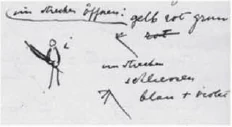 im strecken öffnen: gelb rot grün
rot
i
im strecken
schliessen
blau + violet